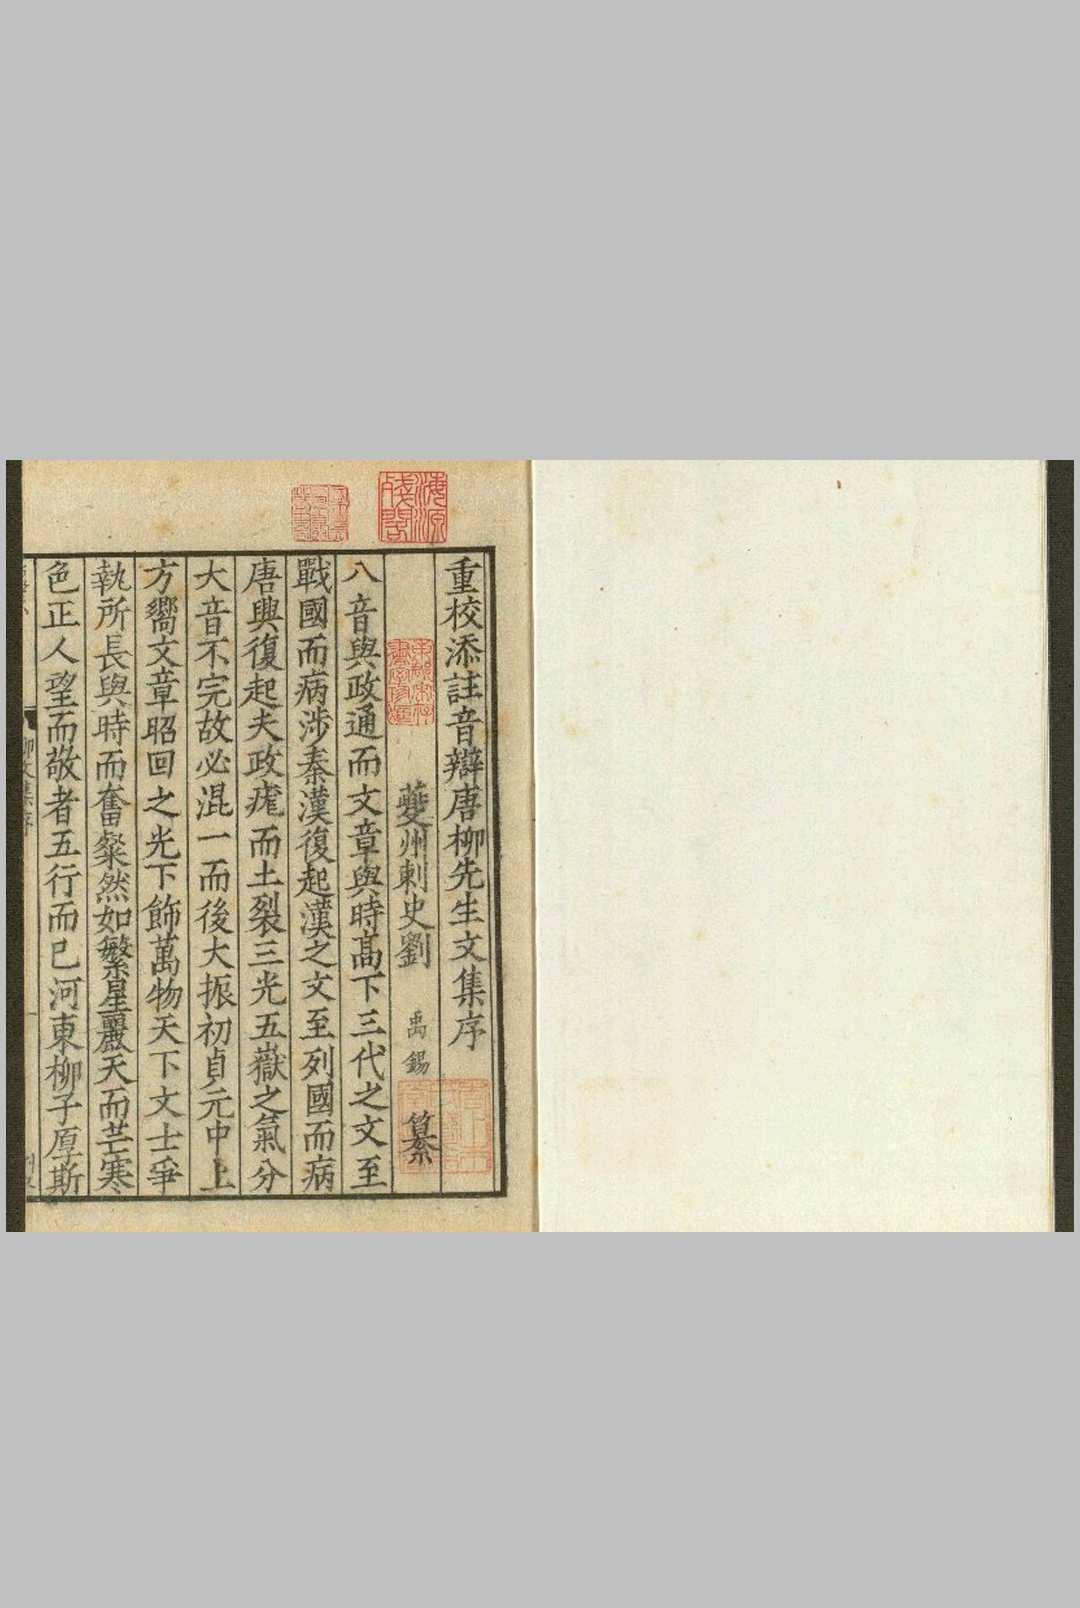 重校添註音辯唐柳先生文集序
夔州刺史劉 禹錫 纂
八音與政通而文章與時髙下三代之文至
戰國而病涉秦漢復起漢之文至列國而病
唐興復起夫政痝而土裂三光五嶽之氣分
大音不完故必混一而後大振初貞元中上
方嚮文章昭回之光下飾萬物天下文士爭
執所長與時而奮粲然如繁星麗天而芒寒
色正人望而敬者五行而已河東柳子厚斯
柳文集序